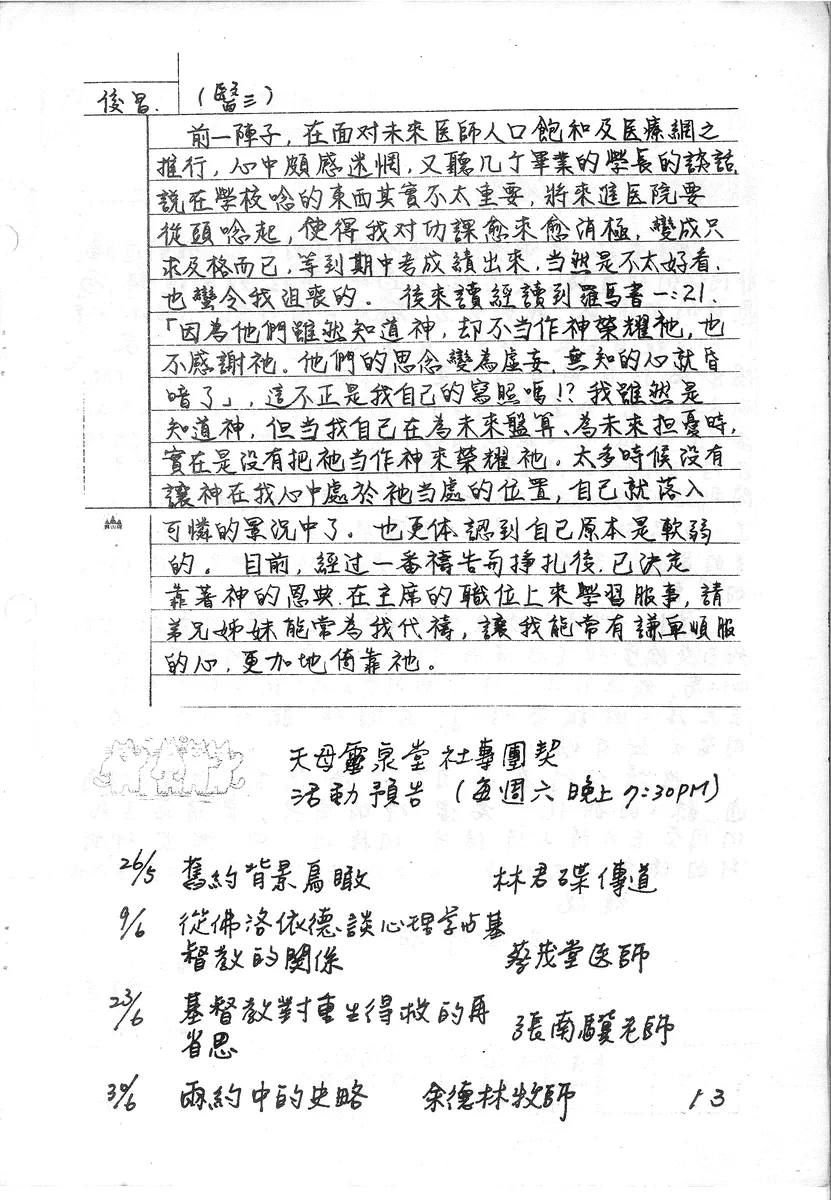 俊昌. (醫三)
前一陣子, 在面对未來医師人口飽和及医療網之
推行, 心中頗感迷惘, 又聽几个畢業的學長的談話,
說在學校唸的東西其實不太重要, 將來進医院要
從頭唸起, 使得我对功課愈來愈消極, 變成只
求及格而已, 等到期中考成績出來, 当然是不太好看,
也蠻令我沮喪的。 後來讀經讀到羅馬書一:21.
「因為他們雖然知道神, 却不当作神榮耀祂, 也
不感謝祂。他們的思念變為虛妄, 無知的心就昏
暗了」, 這不正是我自己的寫照嗎!? 我雖然是
知道神, 但当我自己在為未來盤算、為未來担憂時,
實在是沒有把祂当作神來榮耀祂。太多時候沒有
讓神在我心中處於祂当處的位置, 自己就落入
可憐的景況中了。也更体認到自己原本是軟弱
的。 目前, 經过一番禱告而掙扎後, 已決定
靠著神的恩典, 在主席的職位上來學習服事, 請
弟兄姊妹能常為我代禱, 讓我能常有謙卑順服
的心, 更加地倚靠祂。
天母靈泉堂社專團契
活動預告 (每週六晚上7:30PM)
26/5 舊約背景鳥瞰 林君碟傳道
9/6 從佛洛依德談心理學与基
督教的關係 蔡茂堂医師
23/6 基督教對重生得救的再
省思 張南驥老師
30/6 兩約中的史略 余德林牧師
13